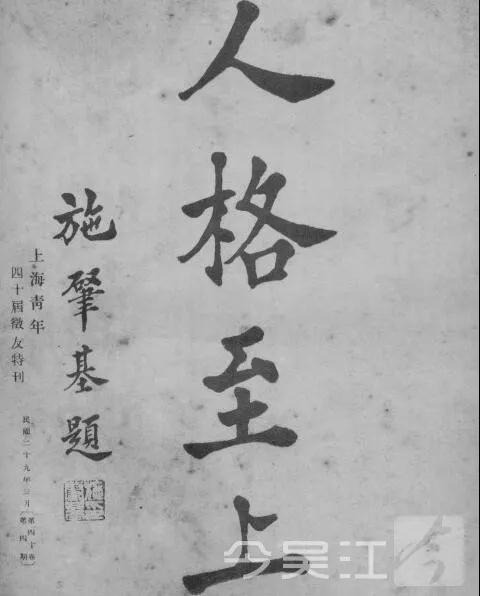 人格至上
施肇基題
上海青年
四十屆徵友特刊
民國二十九年三月〔第四十卷 第四期〕
今吴江